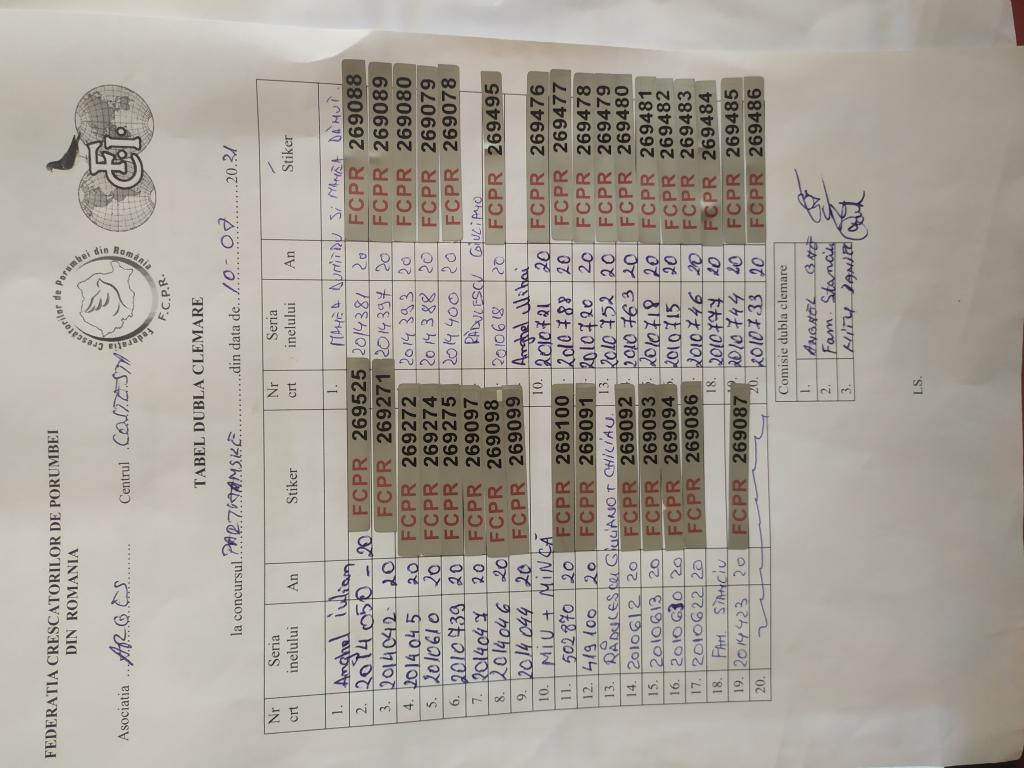 FEDERATIA CRESCATORILOR DE PORUMBEI
DIN ROMANIA
Federatia Crescatorilor de Porumbei din România
F.C.P.R.
Asociatia ARGES Centrul COSTESTI
TABEL DUBLA CLEMARE
la concursul PARTIZANSKE din data de 10-07 2021
Nr crt Seria inelului An Stiker
1. Anghel Iulian
2. 2014050 - 20 FCPR 269525
3. 2014042 20 FCPR 269271
4. 2014045 20 FCPR 269272
5. 2010610 20 FCPR 269274
6. 2010739 20 FCPR 269275
7. 2014047 20 FCPR 269097
8. 2014046 20 FCPR 269098
9. 2014044 20 FCPR 269099
10. MIU + MINCĂ
11. 502870 20 FCPR 269100
12. 419100 20 FCPR 269091
13. RĂDULESCU GIULIANO + CHILIAN
14. 2010612 20 FCPR 269092
15. 2010613 20 FCPR 269093
16. 2010630 20 FCPR 269094
17. 2010622 20 FCPR 269086
18. FAM. STANCIU
19. 2014423 20 FCPR 269087
20.
Nr crt Seria inelului An Stiker
1. MANEA DUMITRU SI MANEA DĂNUT
2014381 20 FCPR 269088
2014397 20 FCPR 269089
2014393 20 FCPR 269080
2014388 20 FCPR 269079
2014400 20 FCPR 269078
RĂDULESCU GIULIANO
2010618 20 FCPR 269495
Anghel Mihai
10. 2010721 20 FCPR 269476
2010788 20 FCPR 269477
2010720 20 FCPR 269478
13. 2010752 20 FCPR 269479
2010763 20 FCPR 269480
2010718 20 FCPR 269481
2010715 20 FCPR 269482
2010746 20 FCPR 269483
18. 2010777 20 FCPR 269484
19. 2010744 20 FCPR 269485
20. 2010733 20 FCPR 269486
Comisie dubla clemare
1. ANGHEL
2. Fam. Stanciu
3.
LS.